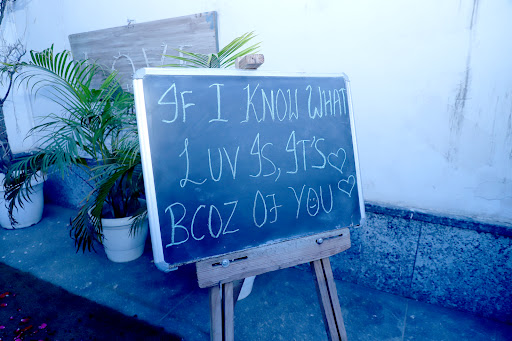 If I Know What
Luv Is, It's
Bcoz Of You